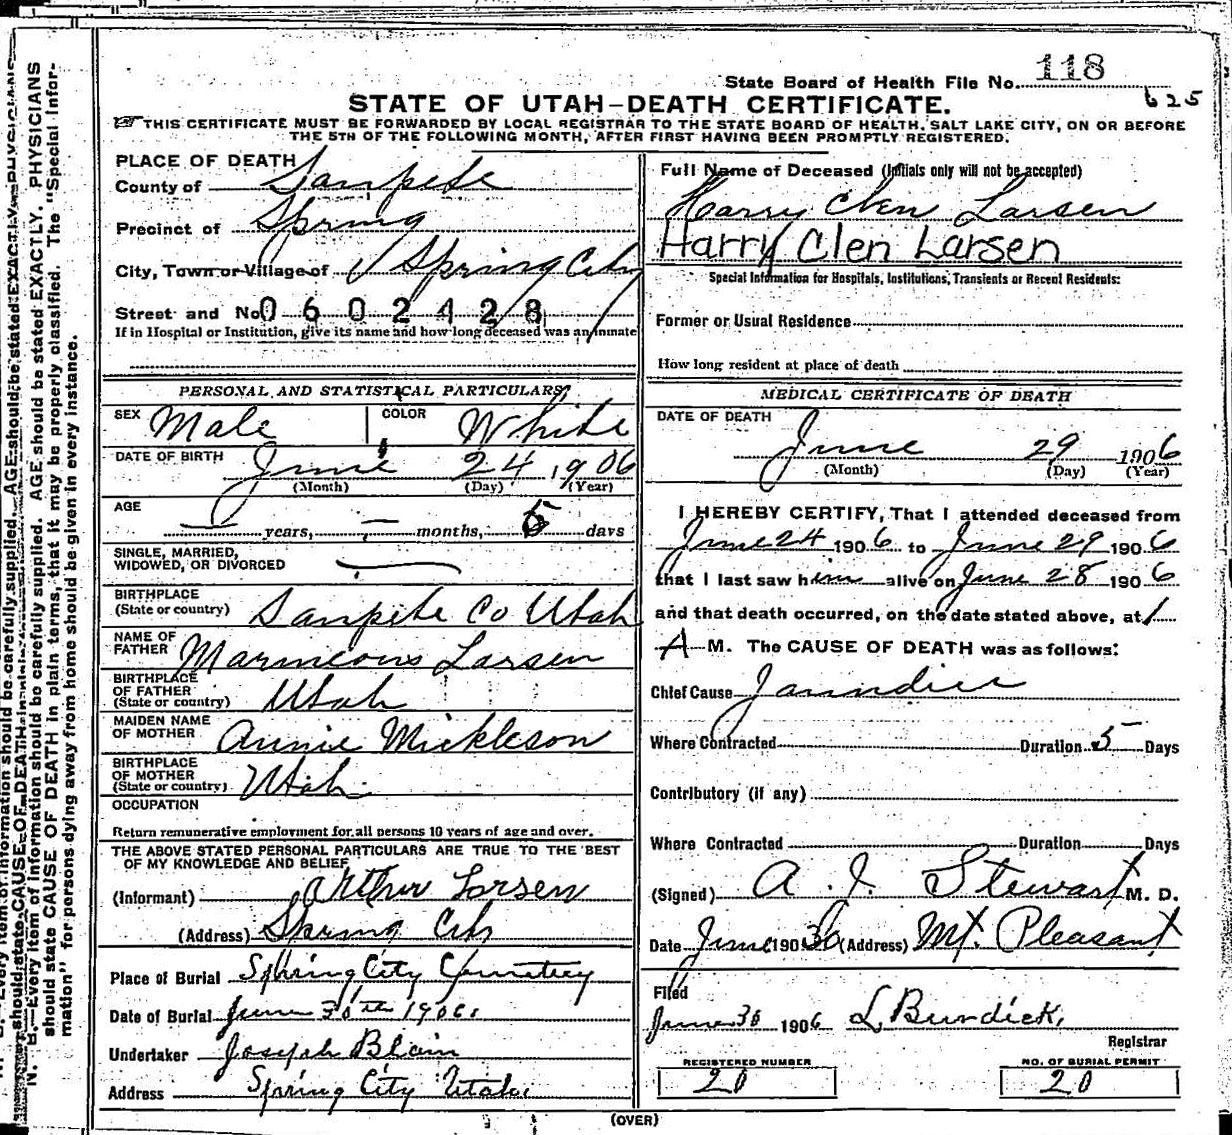 State Board of Health File No. 118
625
STATE OF UTAH–DEATH CERTIFICATE.
THIS CERTIFICATE MUST BE FORWARDED BY LOCAL REGISTRAR TO THE STATE BOARD OF HEALTH, SALT LAKE CITY, ON OR BEFORE
THE 5TH OF THE FOLLOWING MONTH, AFTER FIRST HAVING BEEN PROMPTLY REGISTERED.
PLACE OF DEATH
County of Sanpete
Precinct of Spring
City, Town or Village of Spring City
Street and No. 0602428
If in Hospital or Institution, give its name and how long deceased was an inmate
PERSONAL AND STATISTICAL PARTICULARS
SEX Male COLOR White
DATE OF BIRTH June 24 1906
(Month) (Day) (Year)
AGE — years, — months, 5 days
SINGLE, MARRIED,
WIDOWED, OR DIVORCED —
BIRTHPLACE
(State or country) Sanpete Co Utah
NAME OF
FATHER Marineous Larsen
BIRTHPLACE
OF FATHER
(State or country) Utah
MAIDEN NAME
OF MOTHER Annie Mickleson
BIRTHPLACE
OF MOTHER
(State or country) Utah
OCCUPATION
Return remunerative employment for all persons 10 years of age and over.
THE ABOVE STATED PERSONAL PARTICULARS ARE TRUE TO THE BEST
OF MY KNOWLEDGE AND BELIEF
(Informant) Arthur Larsen
(Address) Spring City
Place of Burial Spring City Cemetery
Date of Burial June 30th 1906
Undertaker Joseph Blain
Address Spring City Utah.
Full Name of Deceased (Initials only will not be accepted)
Harry Clen Larsen
Harry Clen Larsen
Special Information for Hospitals, Institutions, Transients or Recent Residents:
Former or Usual Residence
How long resident at place of death
MEDICAL CERTIFICATE OF DEATH
DATE OF DEATH
June 29 1906
(Month) (Day) (Year)
I HEREBY CERTIFY, That I attended deceased from
June 24 1906 to June 29 1906
that I last saw him alive on June 28 1906
and that death occurred, on the date stated above, at 1
A M. The CAUSE OF DEATH was as follows:
Chief Cause Jaundice
Where Contracted Duration 5 Days
Contributory (if any)
Where Contracted Duration Days
(Signed) A. J. Stewart M. D.
Date June 30 1906 (Address) Mt. Pleasant
Filed
June 30 1906 L. Burdick,
Registrar
REGISTERED NUMBER
20
NO. OF BURIAL PERMIT
20
(OVER)
N. B.—Every item of information should be carefully supplied. AGE should be stated EXACTLY. PHYSICIANS
should state CAUSE OF DEATH in plain terms, that it may be properly classified. The "Special Infor-
mation" for persons dying away from home should be given in every instance.